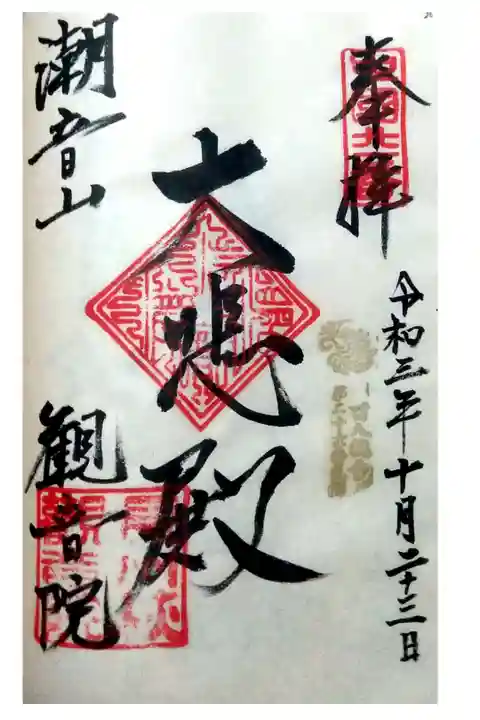 奉拝
令和三年十月二十三日
大悲殿
潮音山
観音院